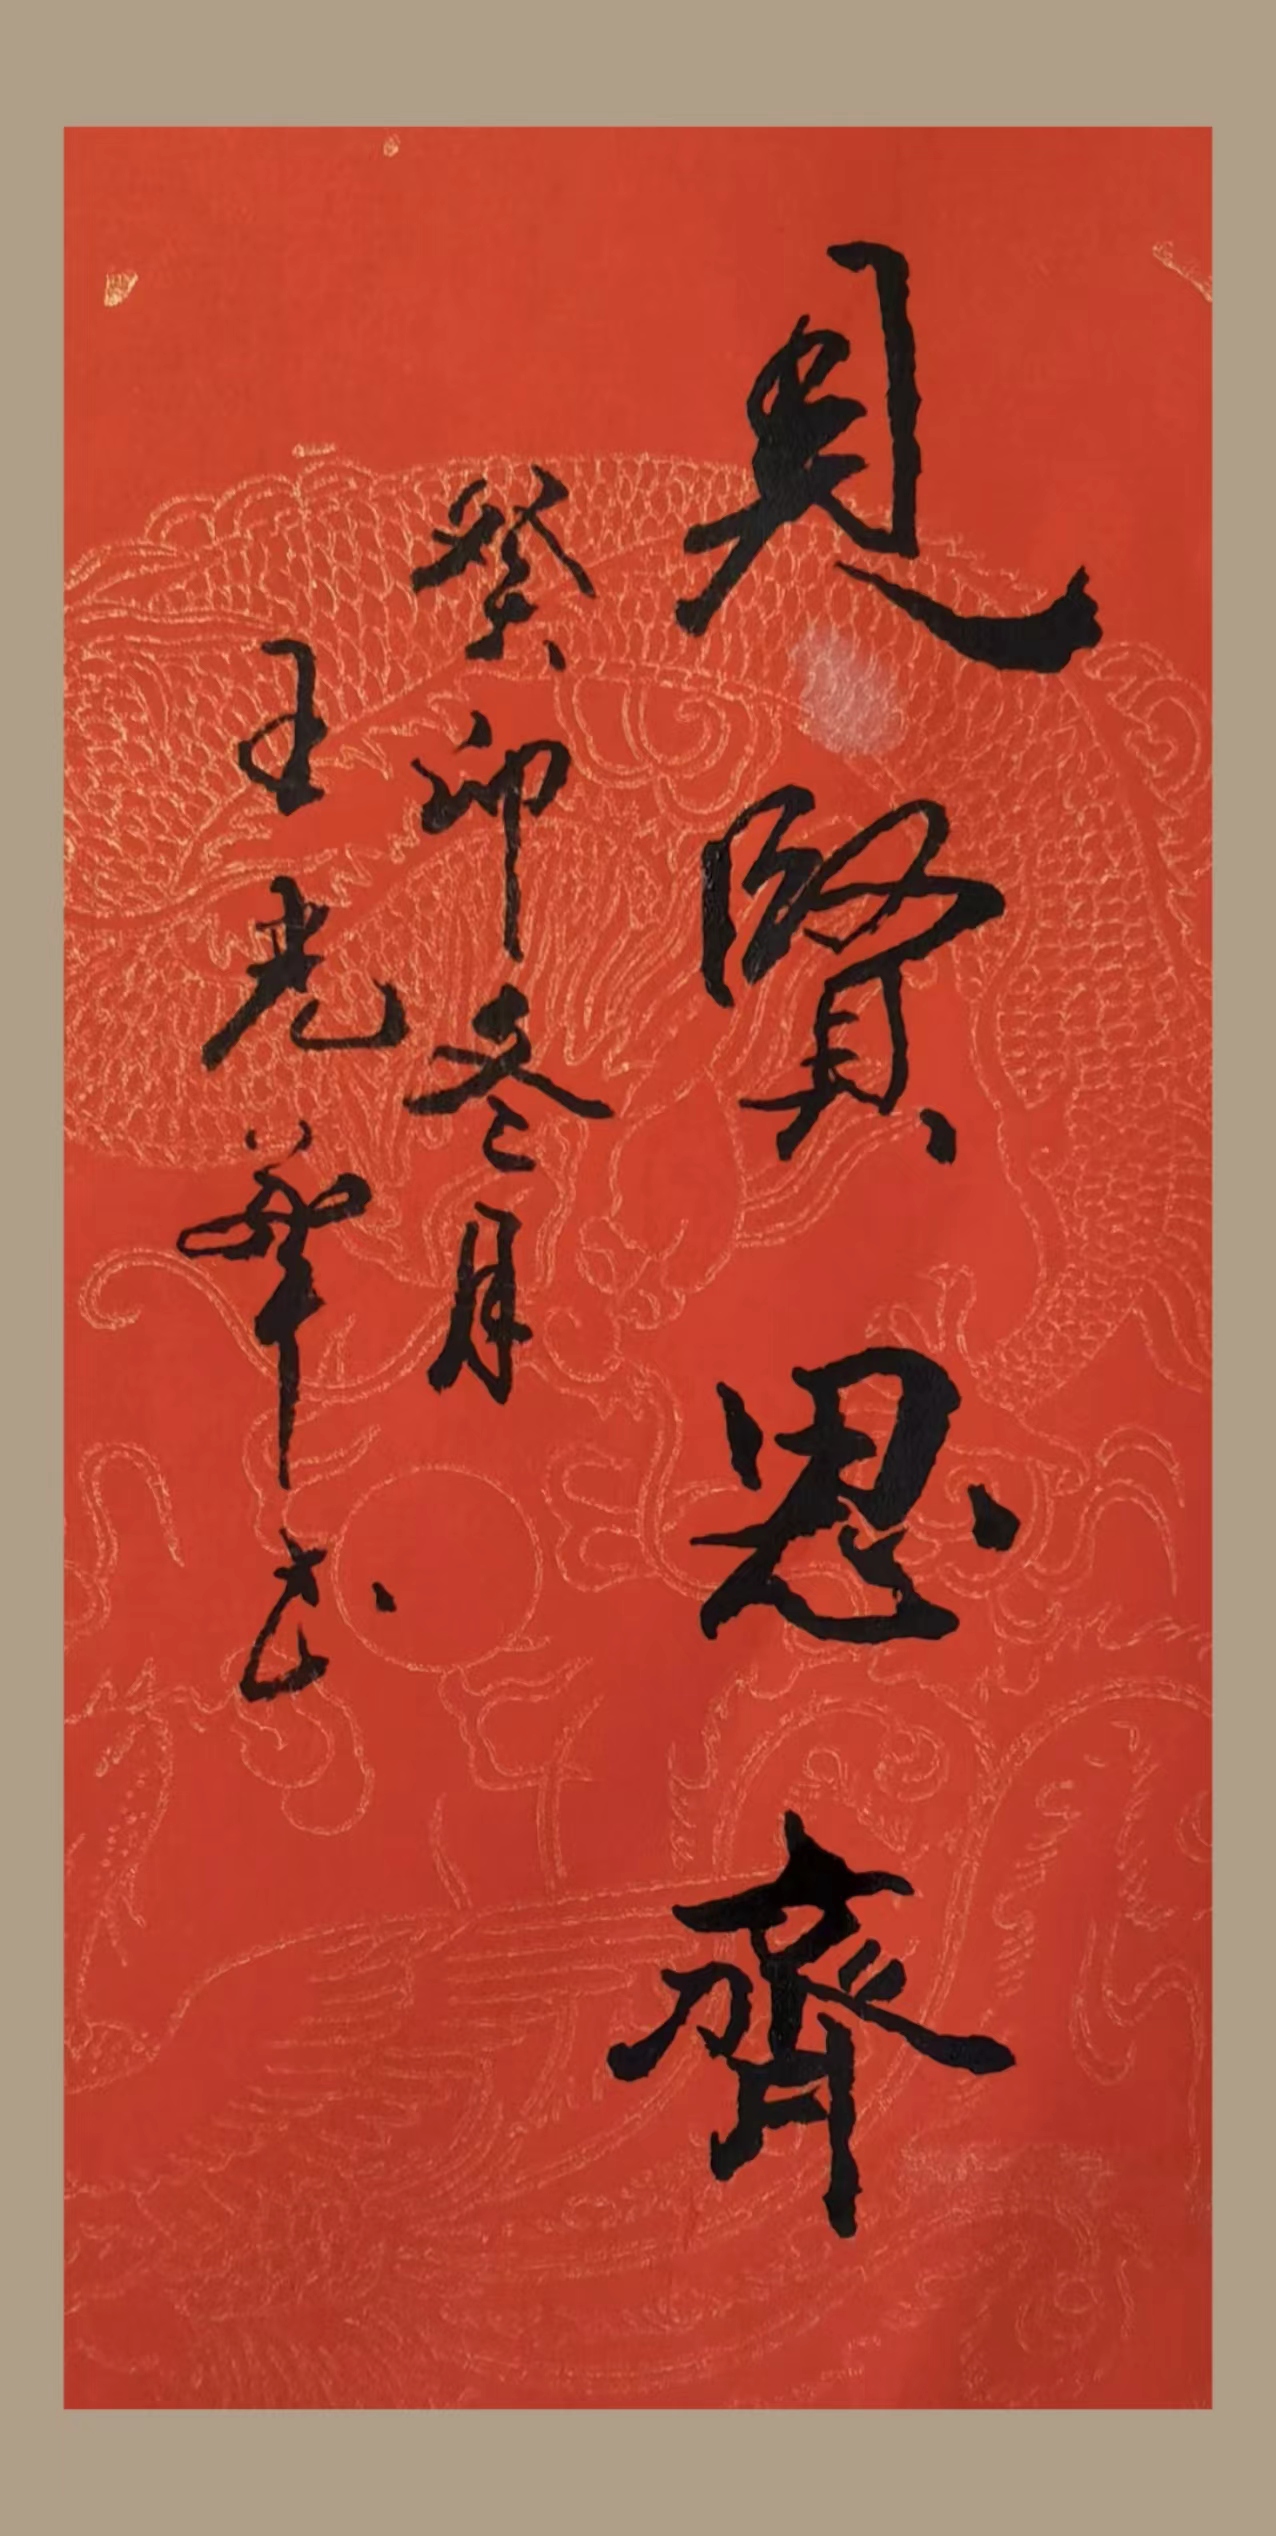 見賢思齊
癸卯冬月
王光華書